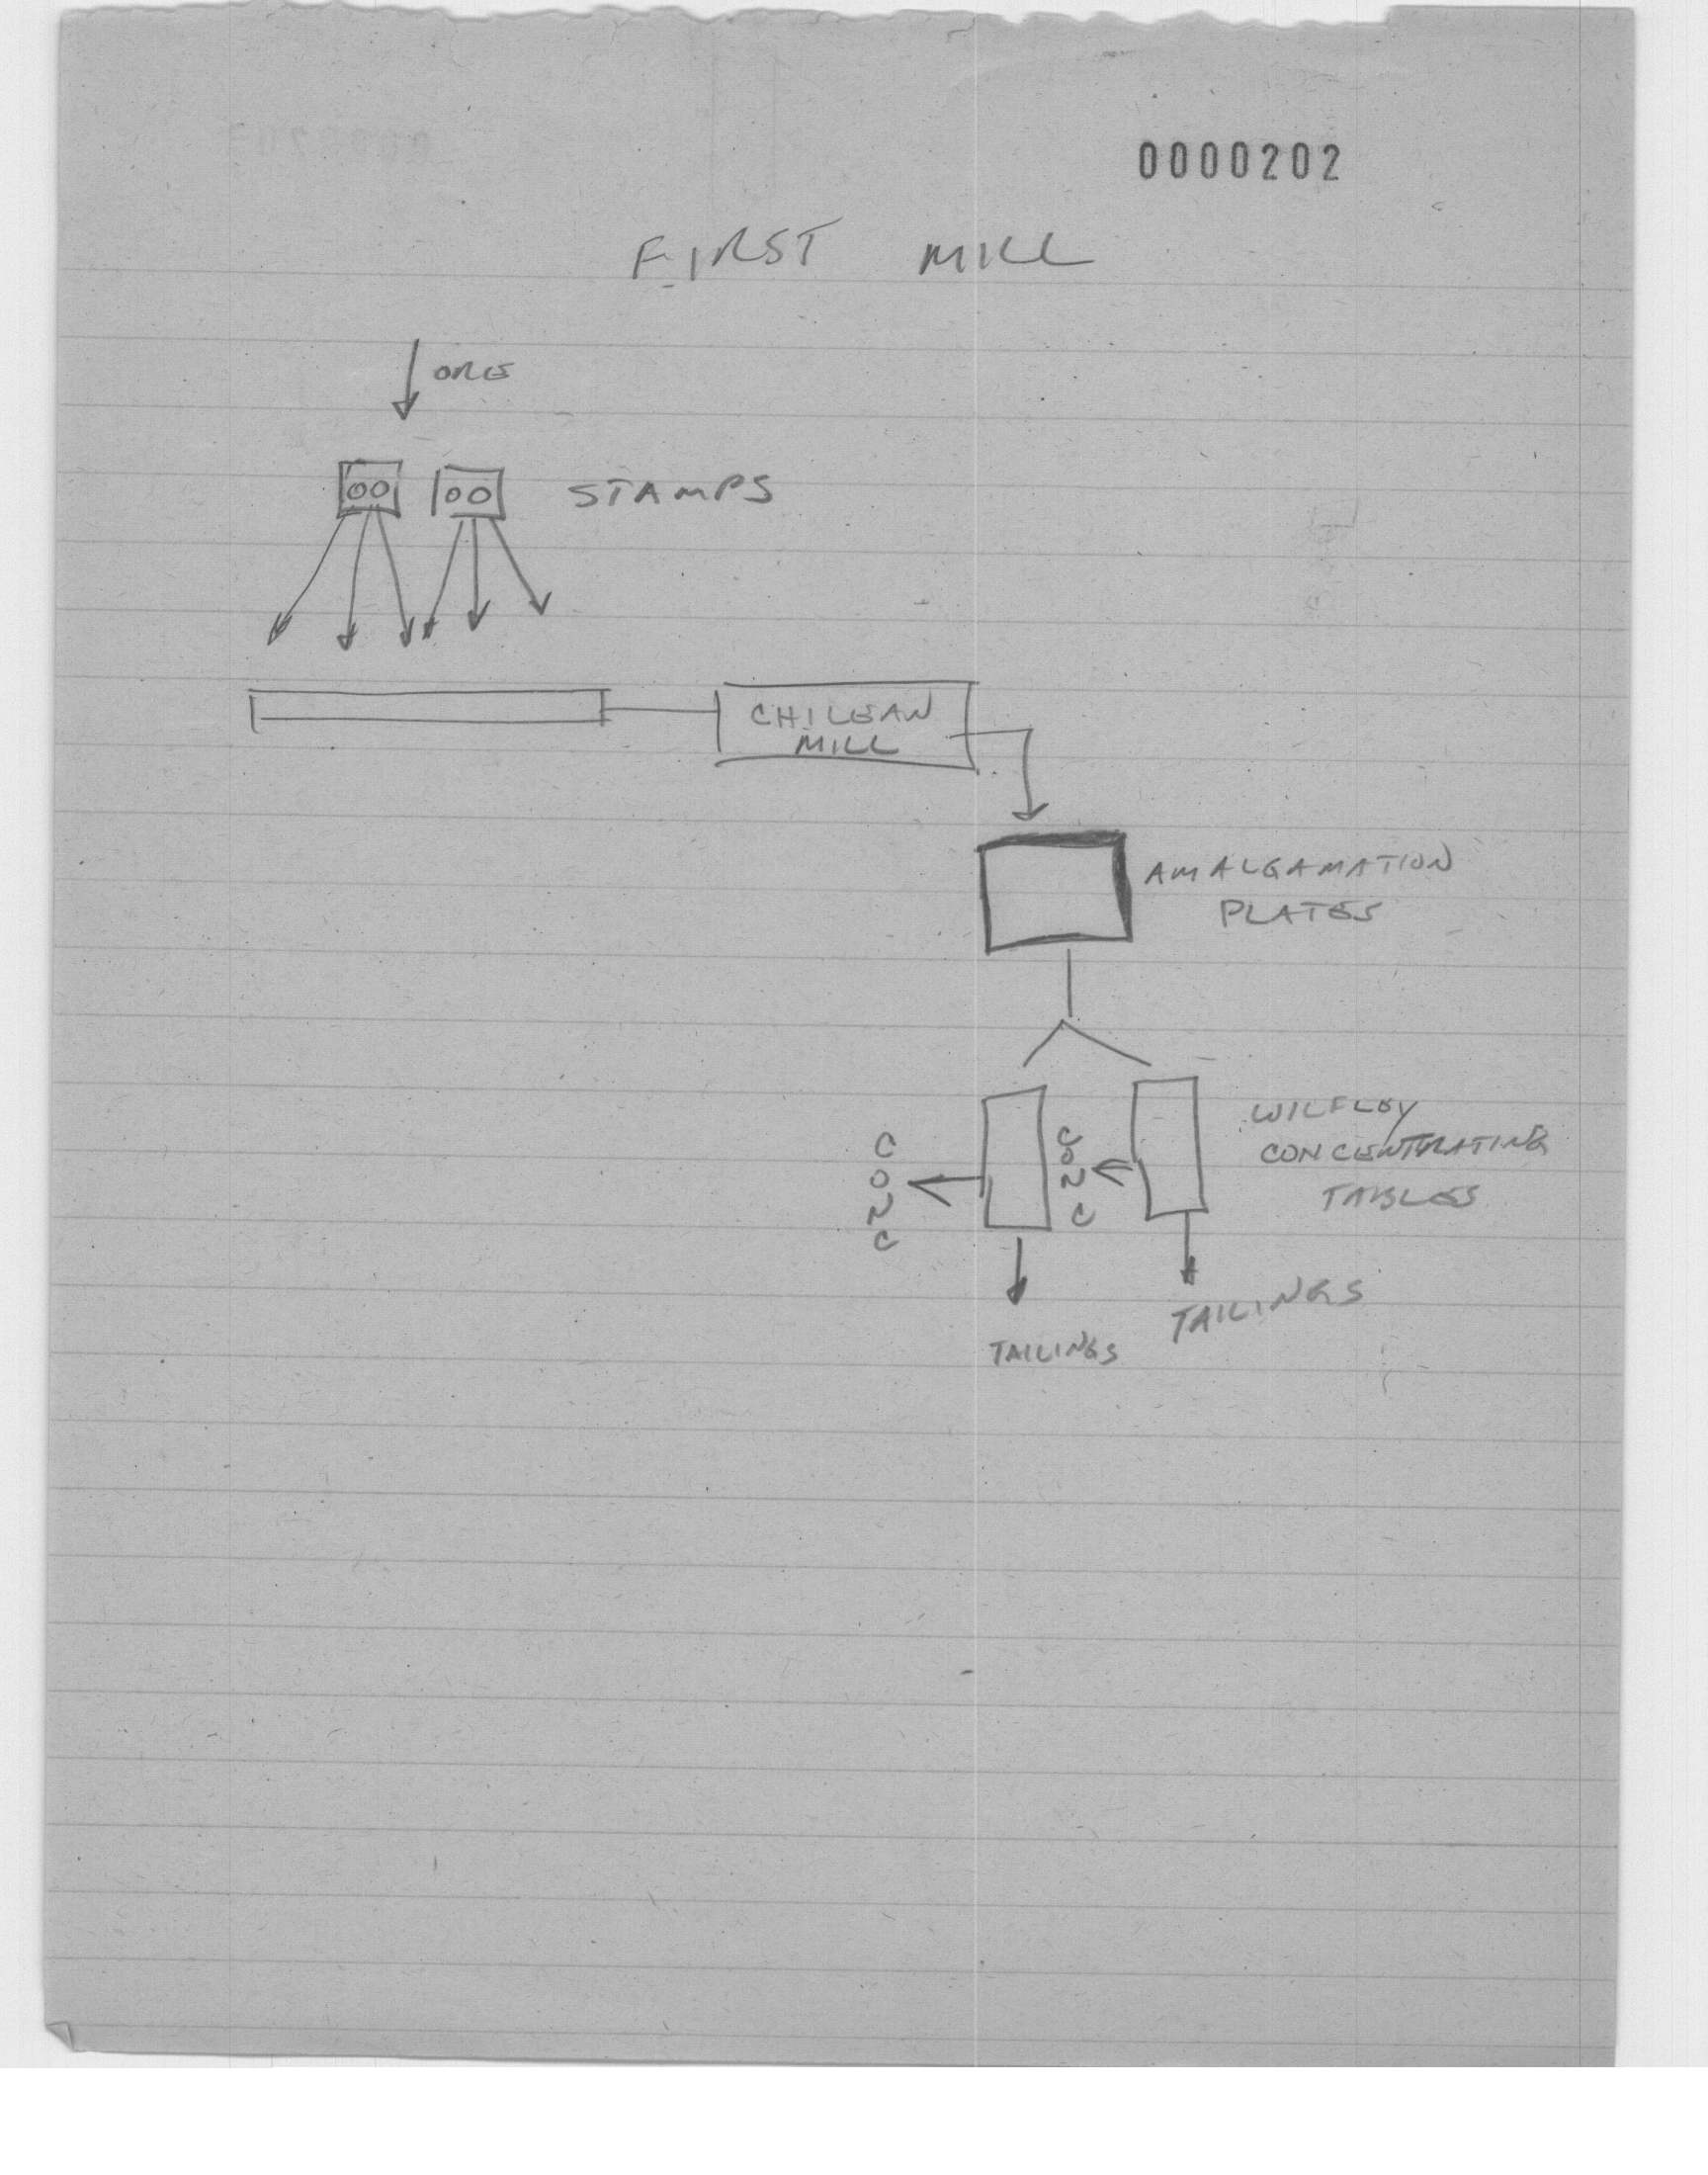 0000202
FIRST MILL
ORE
STAMPS
CHILEAN
MILL
AMALGAMATION
PLATES
WILFLEY
CONCENTRATING
TABLES
CONC
CONC
TAILINGS
TAILINGS